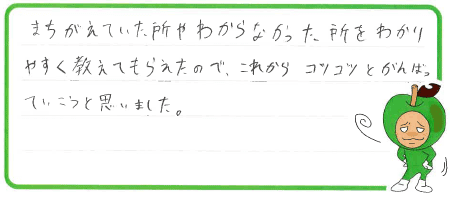 まちがえていた所やわからなかった所をわかり
やすく教えてもらえたので、これから コツコツとがんばっ
ていこうと思いました。